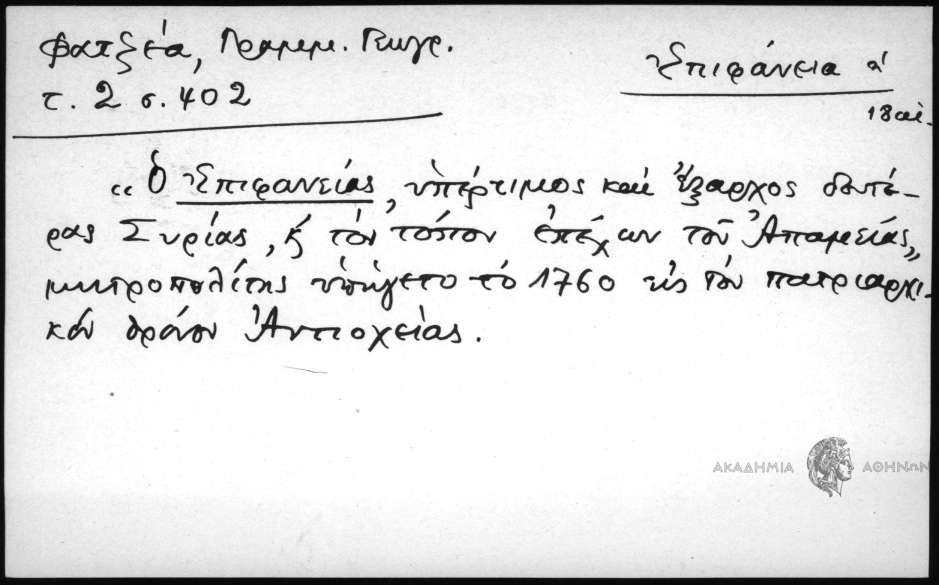 Φατζέα, Γραμμ. Γεωγρ.
τ. 2 σ. 402
Ἐπιφάνεια ἡ
18 αἰ.
“Ὁ Ἐπιφανείας, ὑπέρτιμος καὶ ἔξαρχος δευτέ-
ρας Συρίας, ϗ τὸν τόπον ἐπέχων τοῦ Ἀπαμείας„
μητροπολίτης ὑπήγετο τὸ 1760 εἰς τὸν πατριαρχι-
κὸν θρόνον Ἀντιοχείας.
ΑΚΑΔΗΜΙΑ ΑΘΗΝΩΝ